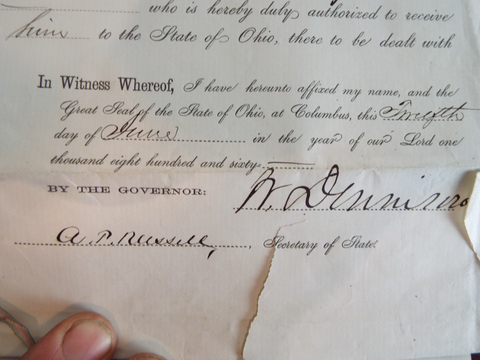 who is hereby duly authorized to receive
him to the State of Ohio, there to be dealt with
In Witness Whereof, I have hereunto affixed my name, and the
Great Seal of the State of Ohio, at Columbus, this Twelfth
day of June in the year of our Lord one
thousand eight hundred and sixty
BY THE GOVERNOR: W. Dennison
A. P. Russell, Secretary of State